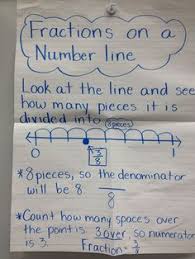 Fractions on a
Number line
Look at the line and see
how many pieces it is
divided into (8 pieces)
0 1
3/8
*8 pieces, so the denominator
will be 8. /8
*Count how many spaces over
the point is 3 over, so numerator
is 3. Fraction = 3/8